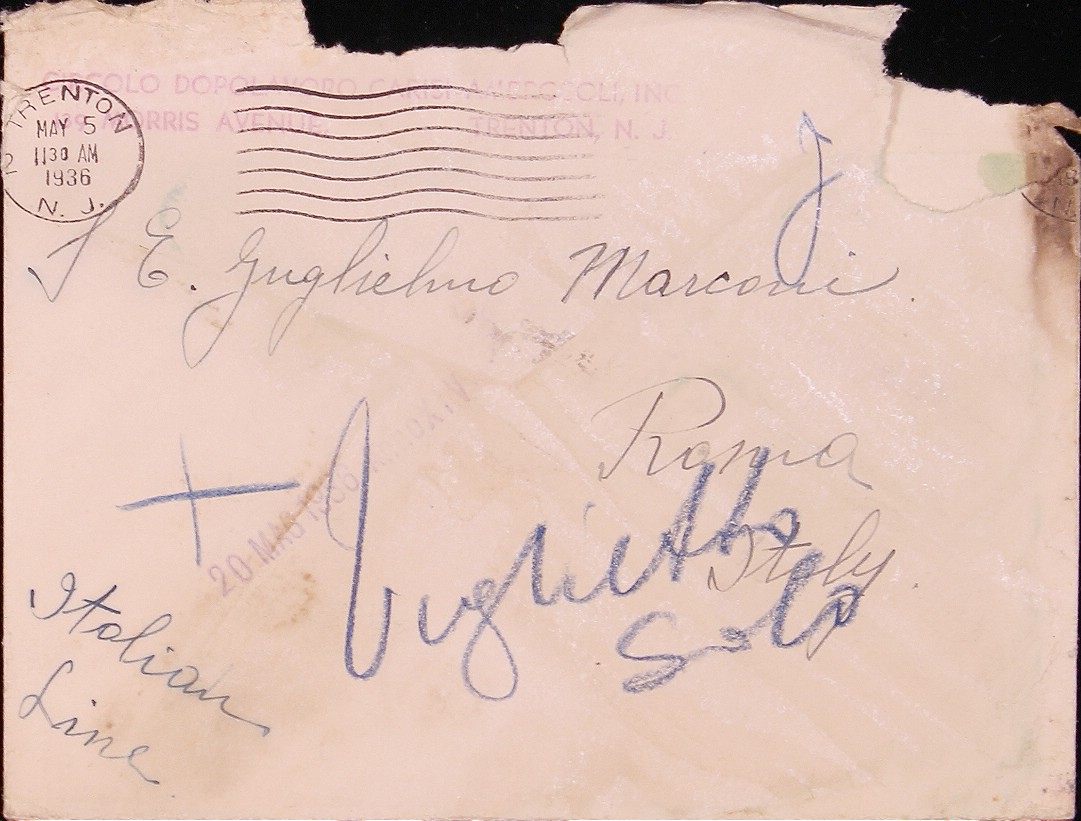 CIRCOLO DOPOLAVORO CARISI AMBROSOLI, INC
199 MORRIS AVENUE, TRENTON, N. J.
TRENTON
MAY 5
1130 AM
1936
N. J.
2
S. E. Guglielmo Marconi.
Roma
Italy.
20 MAG 1936
+
solo
Italian
Line